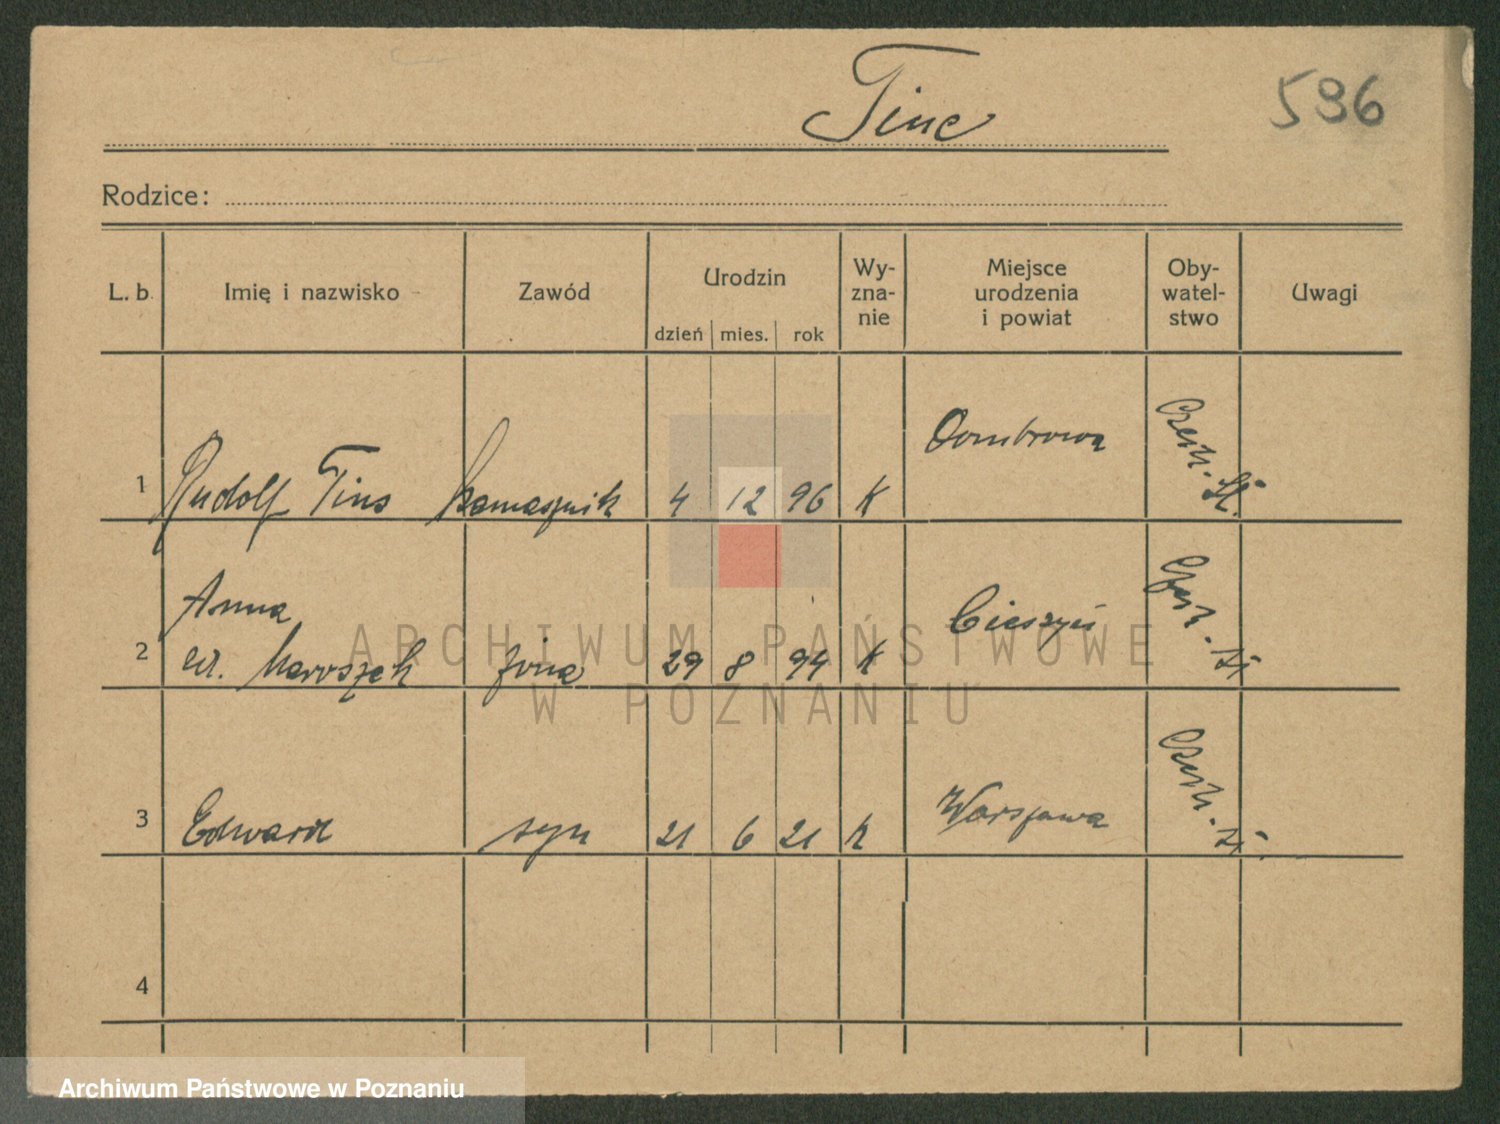 Tinc
596
Rodzice:
L. b. Imię i nazwisko Zawód Urodzin dzień mies. rok Wy-zna-nie Miejsce urodzenia i powiat Oby-watel-stwo Uwagi
1 Rudolf Tins kamasznik 4 12 96 K Dombrowa
2 Anna ur. żona 29 8 94 K Cieszyn
3 Edward syn 21 6 21 k Warszawa
4
ARCHIWUM PAŃSTWOWE
W POZNANIU
Archiwum Państwowe w Poznaniu